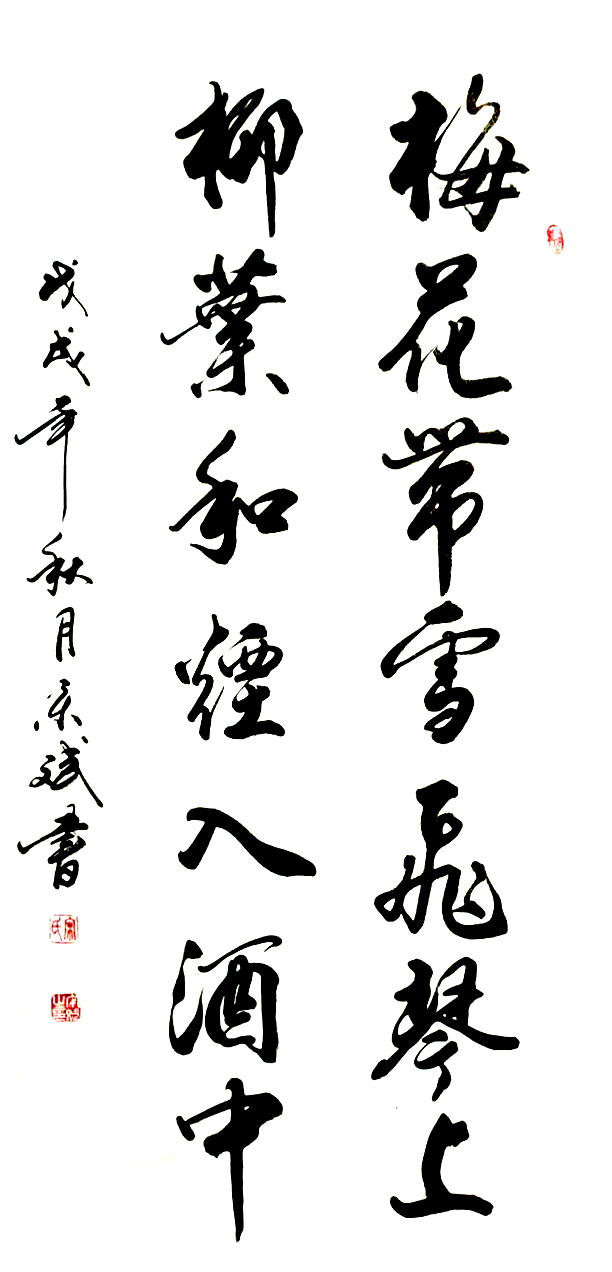 梅花带雪飛琴上
柳葉和煙入酒中
戊戌年秋月景斌書